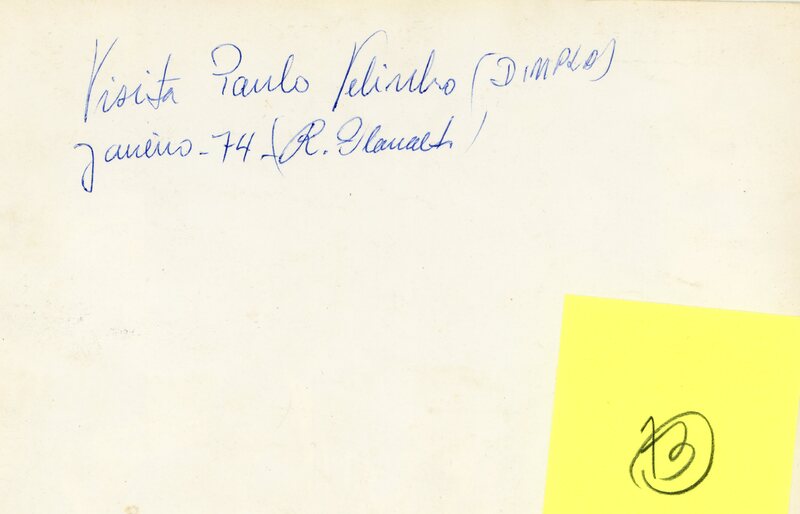 Visita Paulo Velinho (DIMPLO)
Janeiro - 74 - (R. Planalto)
13